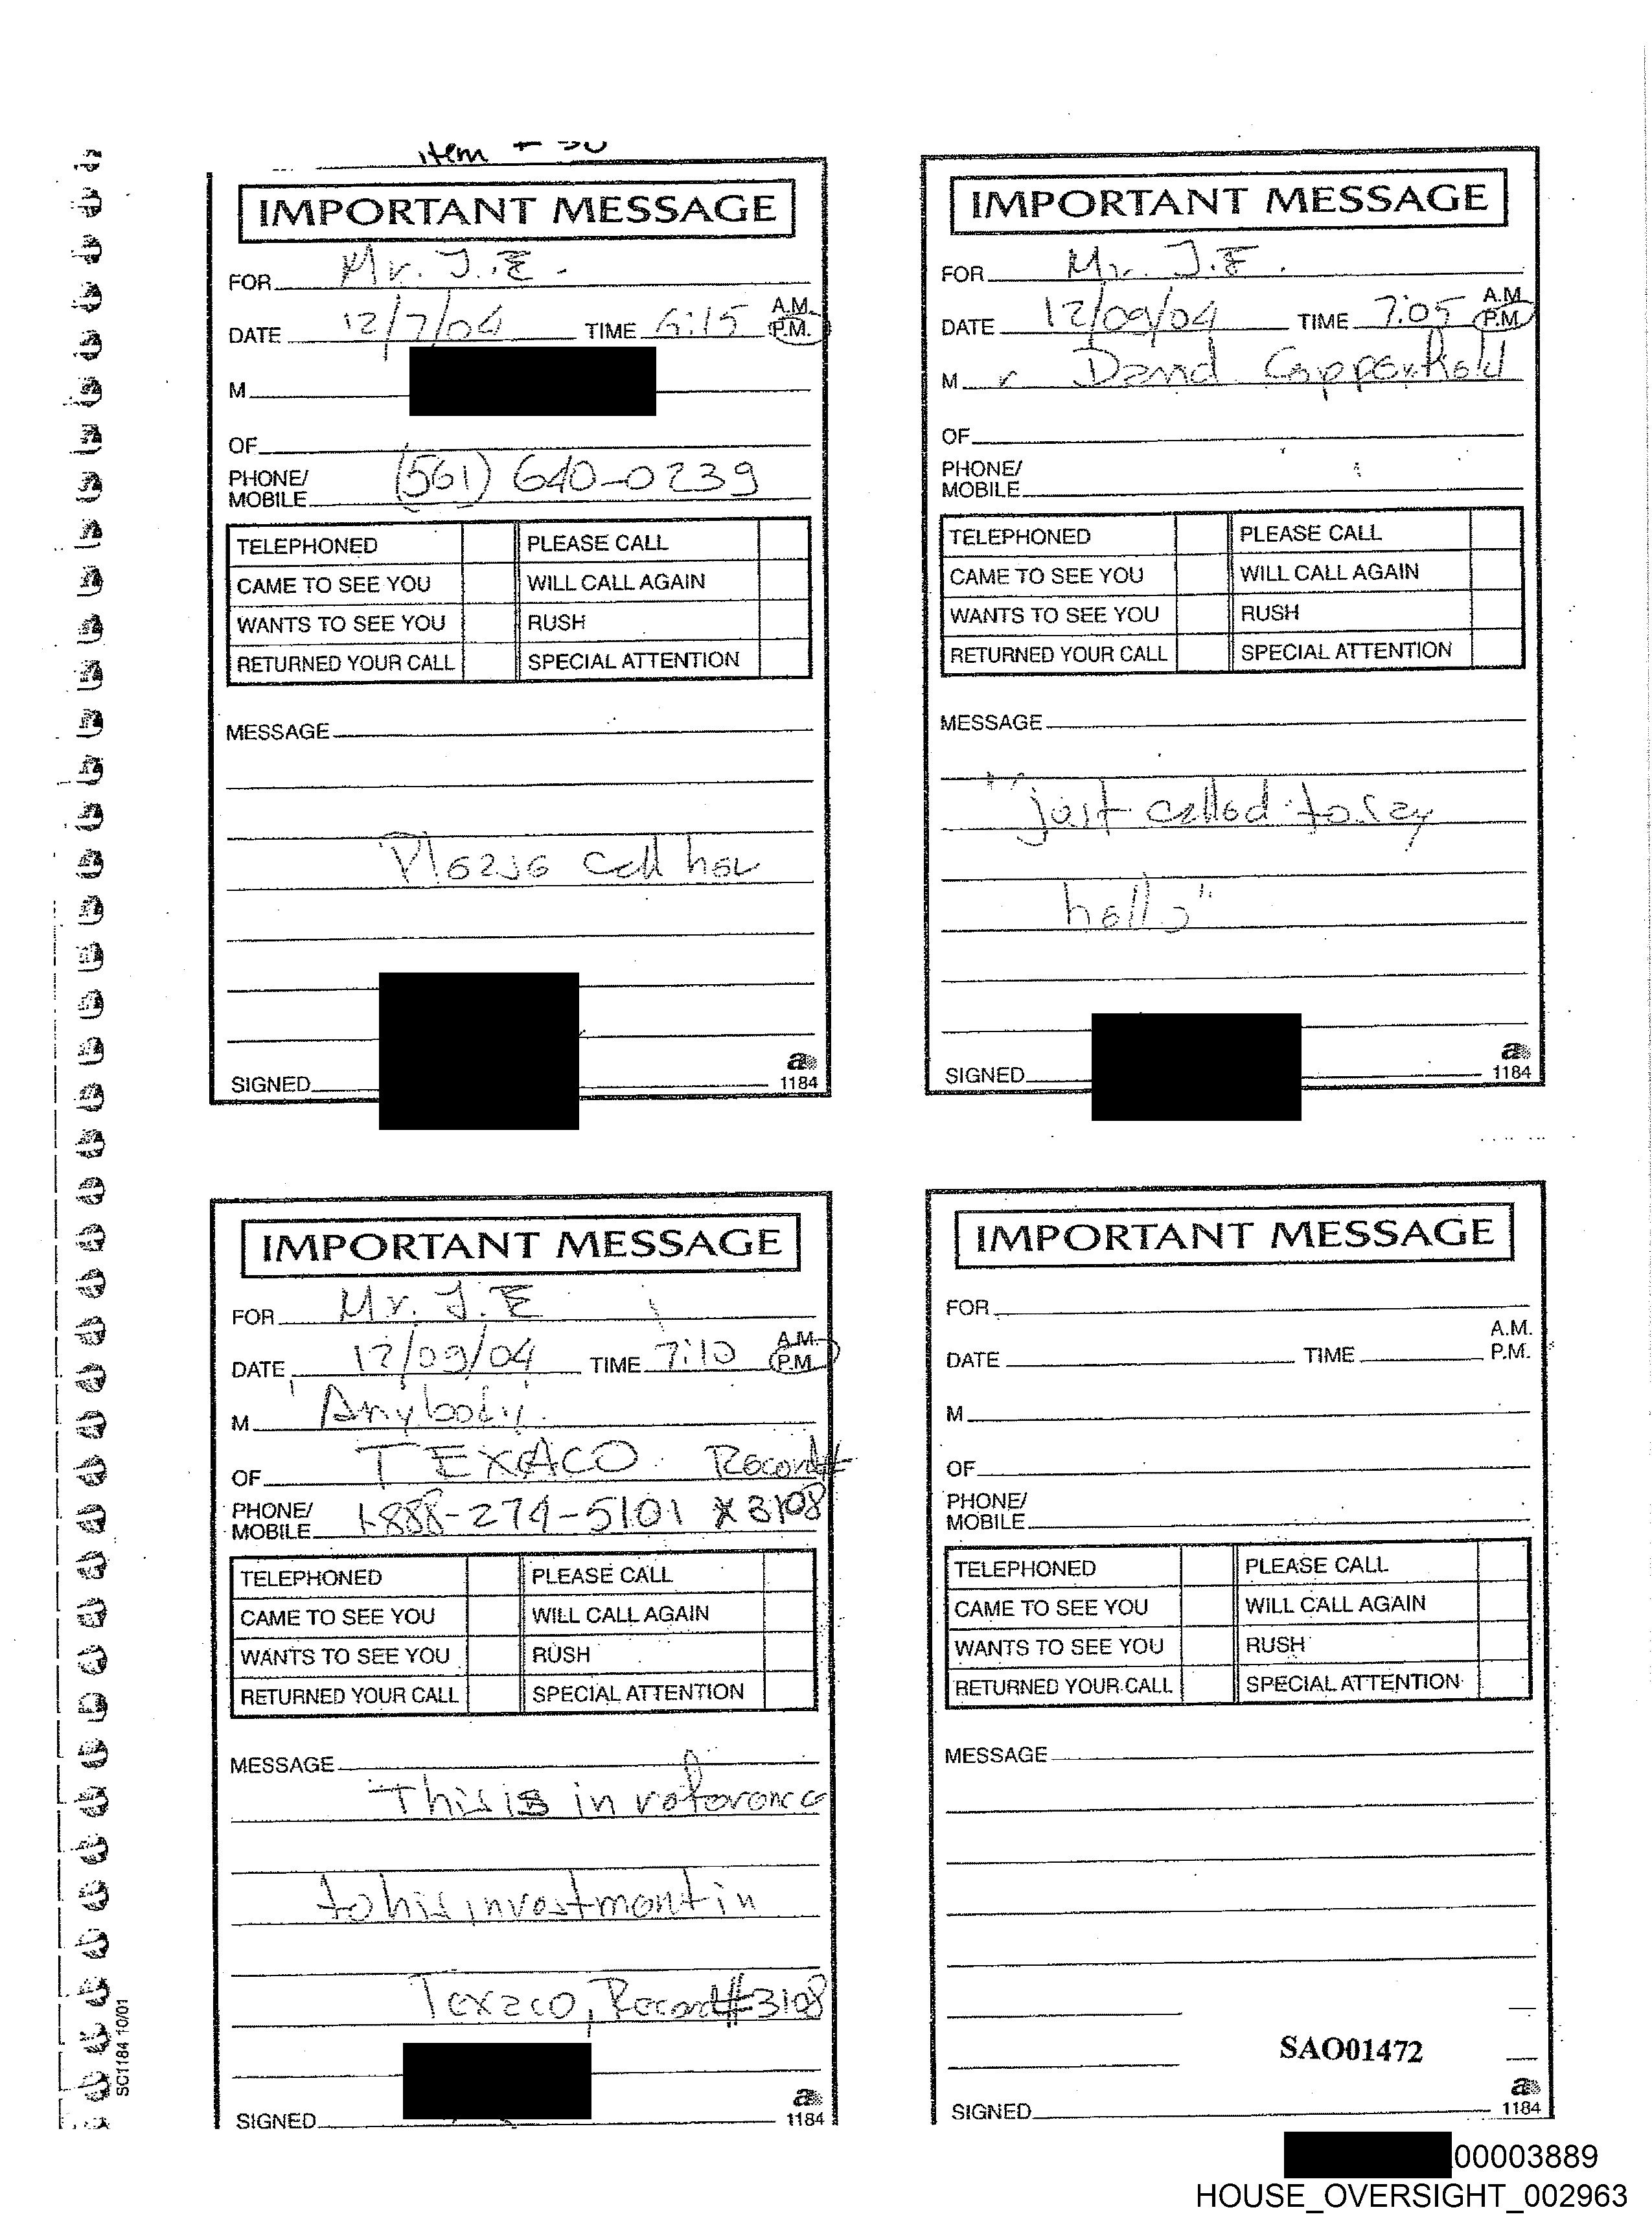 item # 30
IMPORTANT MESSAGE
FOR Mr. J.E.
DATE 12/7/04 TIME 6:15 A.M. P.M.
M
OF
PHONE/ MOBILE (561) 640-0239
TELEPHONED PLEASE CALL
CAME TO SEE YOU WILL CALL AGAIN
WANTS TO SEE YOU RUSH
RETURNED YOUR CALL SPECIAL ATTENTION
MESSAGE
Please call her
SIGNED
a 1184
IMPORTANT MESSAGE
FOR Mr. J.E.
DATE 12/09/04 TIME 7:05 A.M. P.M.
M r David Copperfield
OF
PHONE/ MOBILE
TELEPHONED PLEASE CALL
CAME TO SEE YOU WILL CALL AGAIN
WANTS TO SEE YOU RUSH
RETURNED YOUR CALL SPECIAL ATTENTION
MESSAGE
"just called to say
hello"
SIGNED
a 1184
IMPORTANT MESSAGE
FOR Mr. J.E
DATE 12/09/04 TIME 7:10 A.M. P.M.
M 'Anybody'
OF TEXACO Record#
PHONE/ MOBILE 1-888-274-5101 * 3108
TELEPHONED PLEASE CALL
CAME TO SEE YOU WILL CALL AGAIN
WANTS TO SEE YOU RUSH
RETURNED YOUR CALL SPECIAL ATTENTION
MESSAGE
This is in reference
to his investment in
Texaco, Record#3108
SIGNED
a 1184
IMPORTANT MESSAGE
FOR
DATE TIME A.M. P.M.
M
OF
PHONE/ MOBILE
TELEPHONED PLEASE CALL
CAME TO SEE YOU WILL CALL AGAIN
WANTS TO SEE YOU RUSH
RETURNED YOUR CALL SPECIAL ATTENTION
MESSAGE
SAO01472
SIGNED
a 1184
SC1184 10/01
00003889
HOUSE_OVERSIGHT_002963